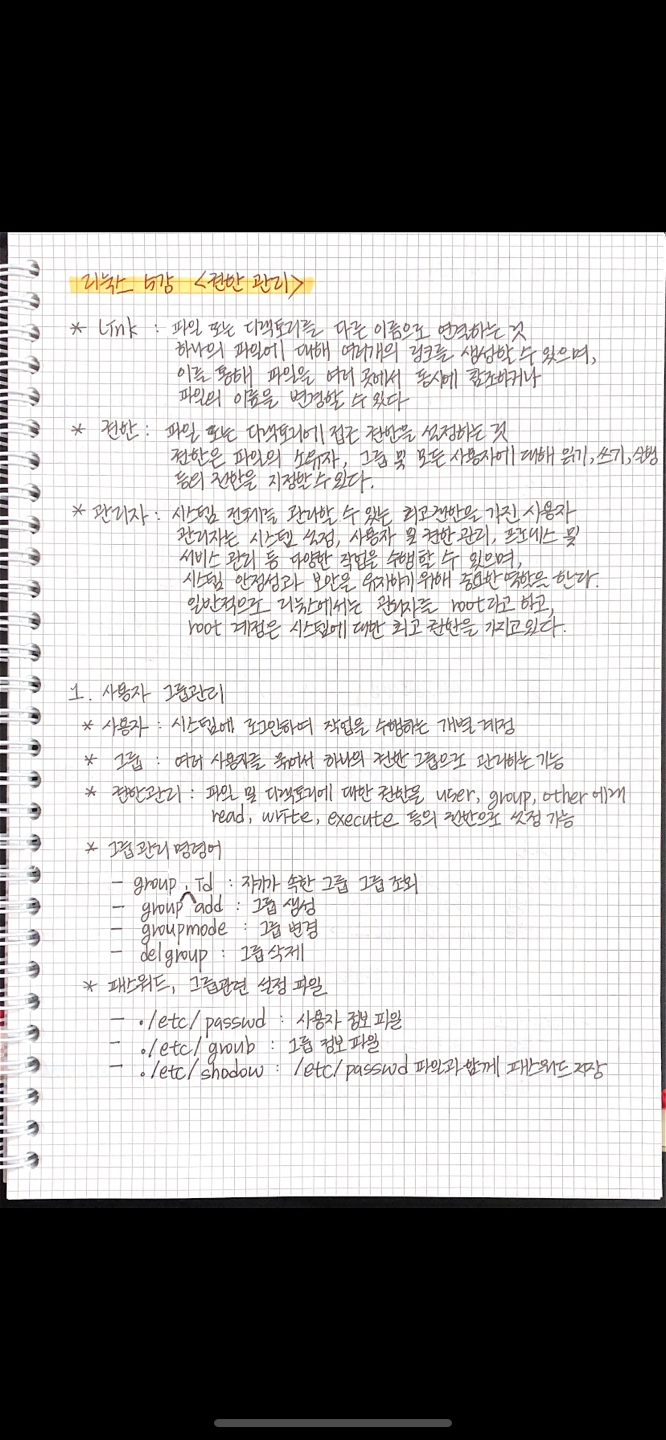 리눅스 5강 <권한 관리>
* Link : 파일 또는 디렉토리를 다른 이름으로 연결하는 것
하나의 파일에 대해 여러개의 링크를 생성할 수 있으며,
이를 통해 파일을 여러 곳에서 동시에 참조하거나
파일의 이름을 변경할 수 있다
* 권한 : 파일 또는 디렉토리에 접근 권한을 설정하는 것
권한은 파일의 소유자, 그룹 및 모든 사용자에 대해 읽기, 쓰기, 실행
등의 권한을 지정할 수 있다.
* 관리자 : 시스템 전체를 관리할 수 있는 최고권한을 가진 사용자
관리자는 시스템 설정, 사용자 및 권한 관리, 프로세스 및
서비스 관리 등 다양한 작업을 수행할 수 있으며,
시스템 안정성과 보안을 유지하기 위해 중요한 역할을 한다.
일반적으로 리눅스에서는 관리자를 root라고 하고,
root 계정은 시스템에 대한 최고 권한을 가지고 있다.
1. 사용자 그룹관리
* 사용자 : 시스템에 로그인하여 작업을 수행하는 개별 계정
* 그룹 : 여러 사용자를 묶어서 하나의 권한 그룹으로 관리하는 기능
* 권한관리 : 파일 및 디렉토리에 대한 권한을 user, group, other에게
read, write, execute 등의 권한으로 설정 가능
* 그룹 관리 명령어
- group, id : 자기가 속한 그룹 그룹 조회
- group add : 그룹 생성
- groupmode : 그룹 변경
- delgroup : 그룹 삭제
* 패스워드, 그룹관련 설정 파일
- ./etc/passwd : 사용자 정보 파일
- ./etc/group : 그룹 정보 파일
- ./etc/shadow : /etc/passwd 파일과 함께 패스워드 저장